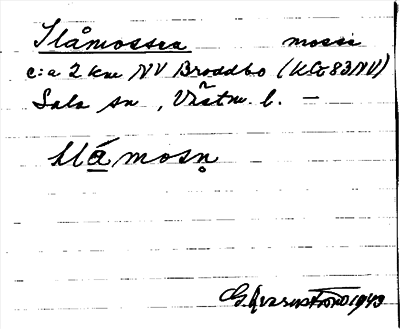 Slåmossen mosse
c:a 2 km NV Broddbo (KBl 83 NV)
Sala sn, Västm. l. –
slǻmosṇ
G. Kvarnström 1943